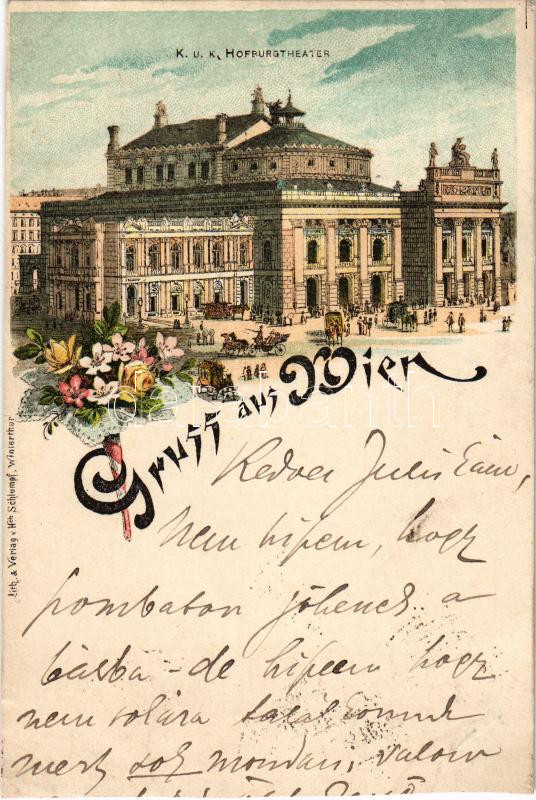 K. u. K. Hofburgtheater
Gruss aus Wien
Lith. & Verlag v. Hch Schlumpf, Winterthur
darabanth
Kedves Julis
Nem hiszem, hogy
szombaton jöhenek a
bálba - de hiszem hogy
nem sokára találkozunk
mert sok mondani, valom